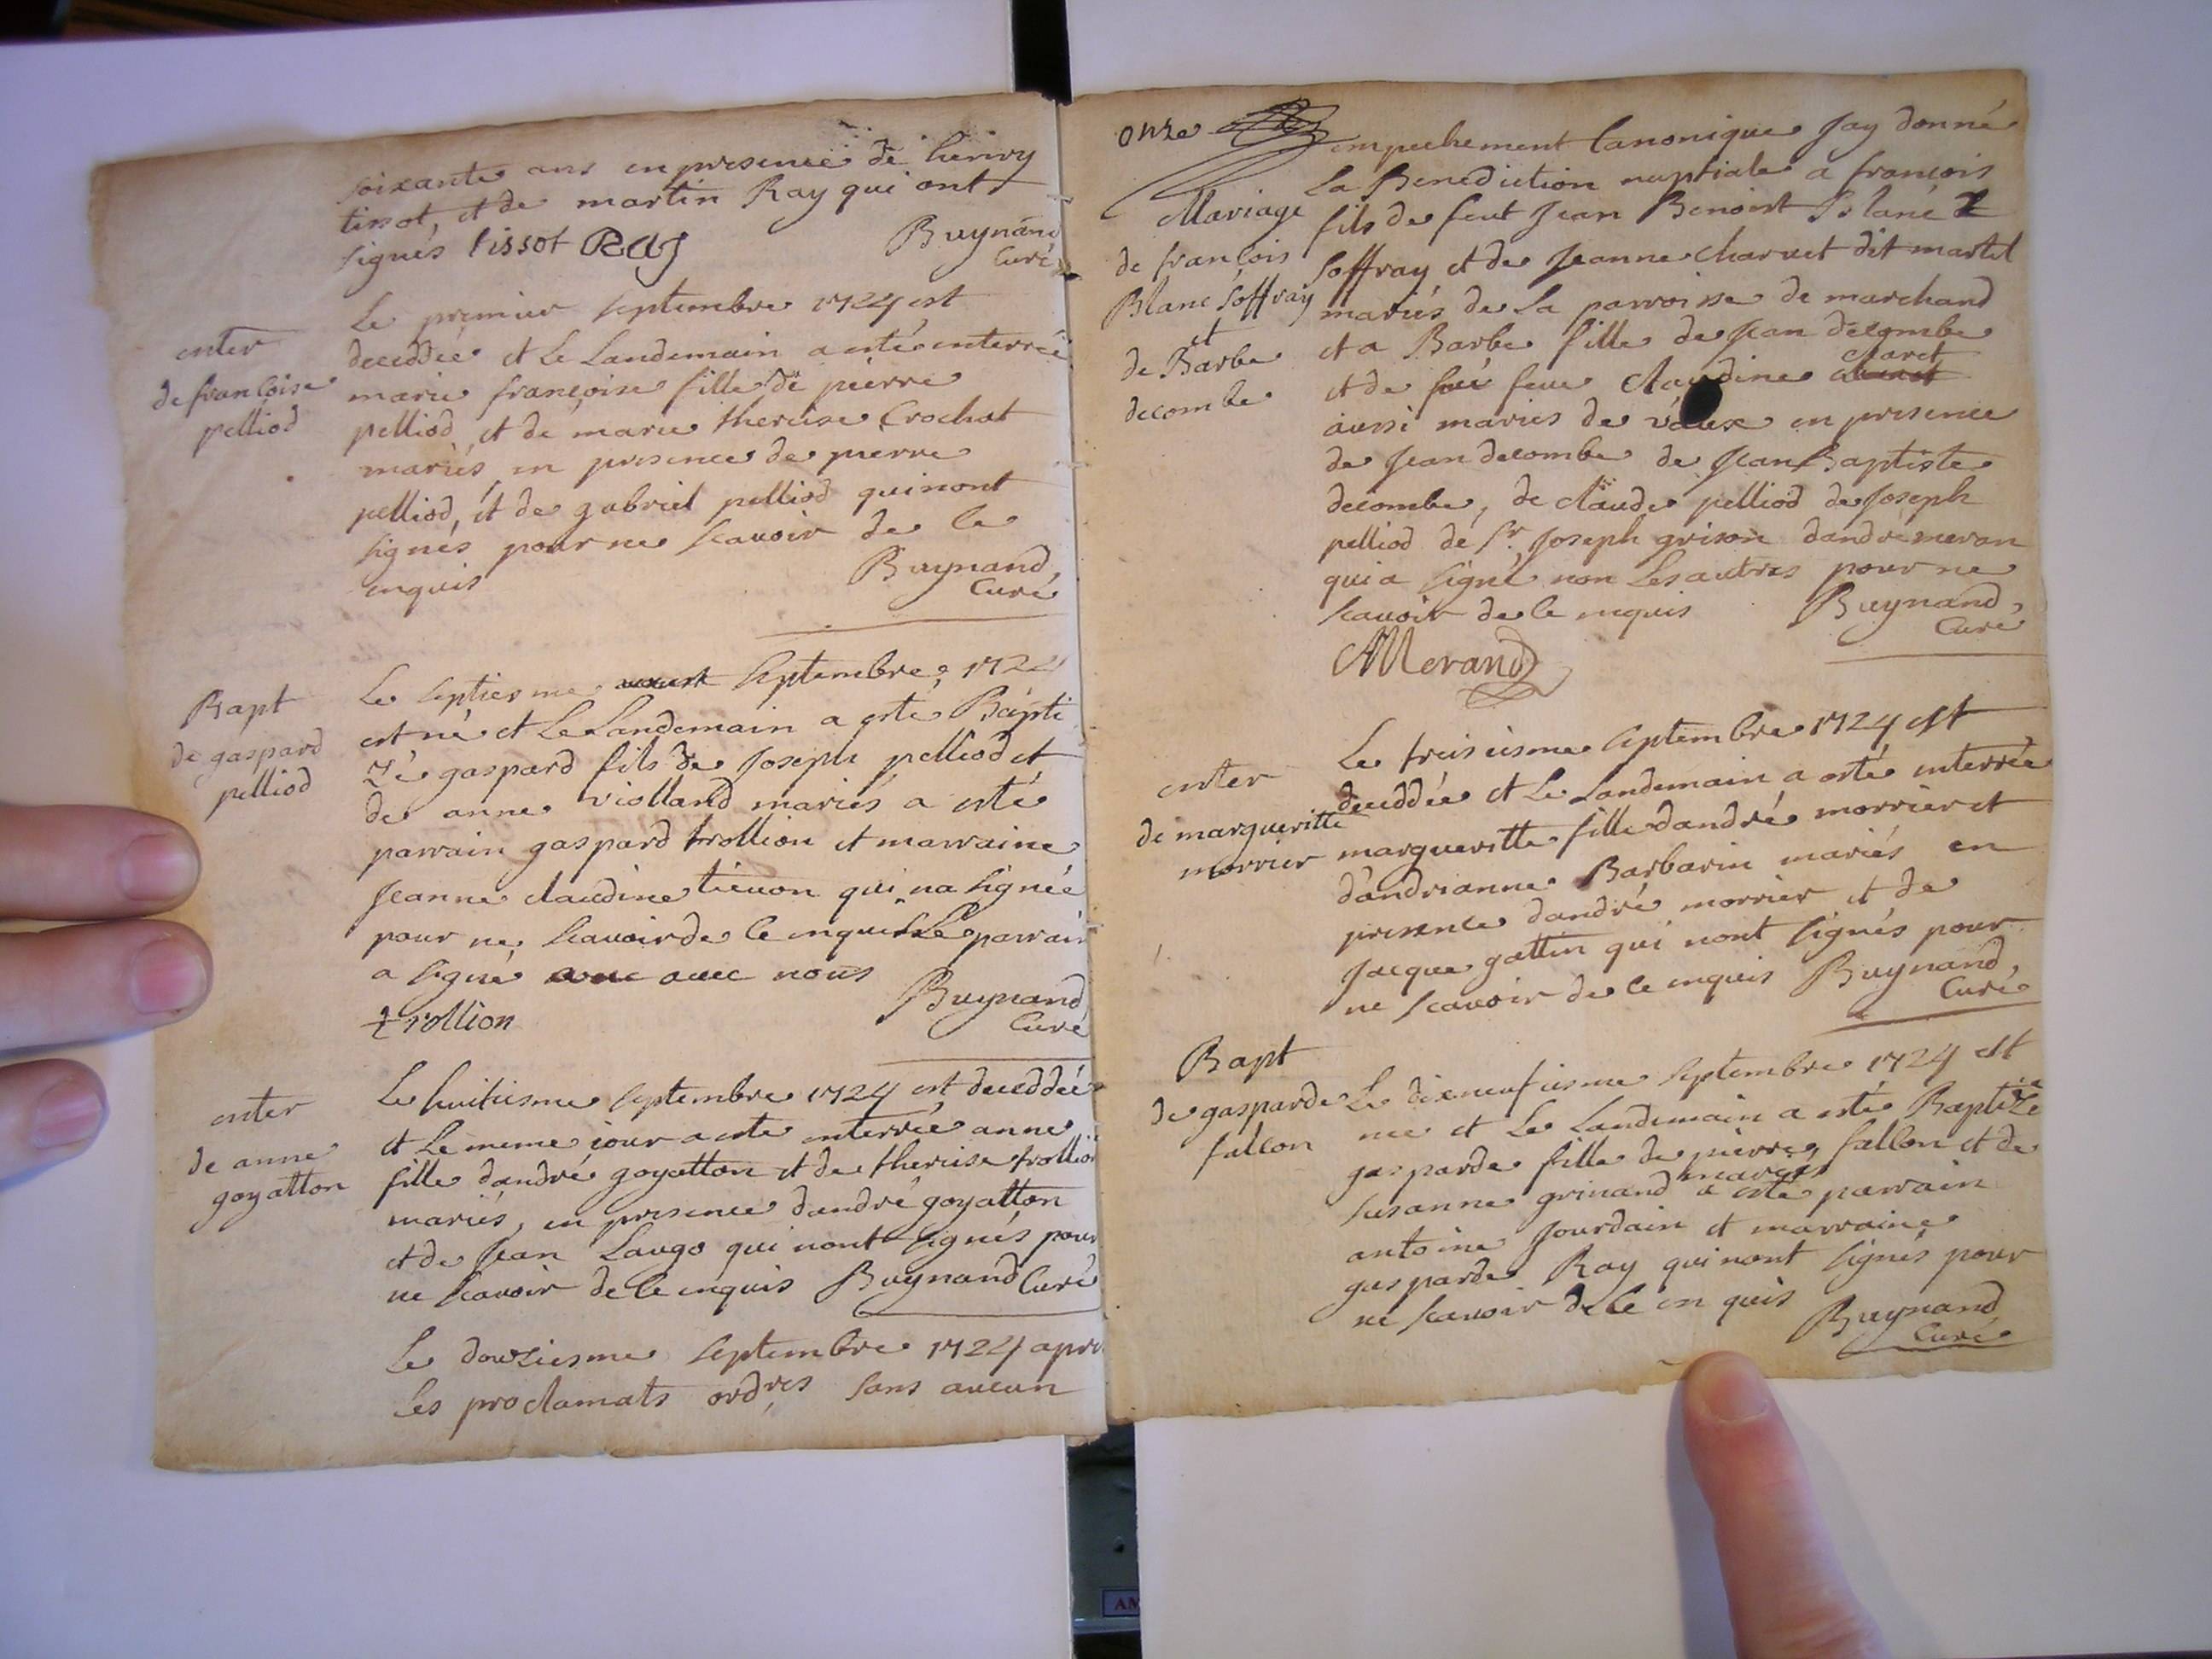 soixante ans en presence de henry
tissot, et de martin Ray qui ont
signés tissot Ray Buynand
Curé
enter
de françoise
pelliod
Le premier septembre 1724 est
deceddée et Le Landemain a esté enterrée
marie françoise fille de pierre
pelliod et de marie therese Crochat
mariés en presence de pierre
pelliod, et de gabriel pelliod qui nont
signés pour ne scavoir de ce
enquis Buynand,
Curé
Bapt
de gaspard
pelliod
Le septiesme septembre 1724
est né et Le Landemain a esté Bapti
Zé gaspard fils de Joseph pelliod et
de anne violland mariés a esté
parrain gaspard trollion et marraine
Jeanne claudine tievon qui na signée
pour ne scavoir de ce enquise Le parrain
a signé avec nous Buynand
trollion Curé
enter
de anne
goyatton
Le huitiesme septembre 1724 est deceddée
et Le meme jour a esté enterrée anne
fille dandré goyatton et de therese trollion
mariés, en presence dandré goyatton
et de Jean Laugo qui nont signés pour
ne scavoir de ce enquis Buynand Curé
Le douziesme septembre 1724 apres
Les proclamats ordres sans aucun
onze
Mariage
de françois
Blanc soffray
et
de Barbe
decombe
empechement Canonique Jay donné
La Benediction nuptiale a françois
fils de feut Jean Benoist Blanc
soffray et de Jeanne charvet dit martel
mariés de La parroisse de marchand
et a Barbe fille de Jean decombe
et de feue claudine claret
aussi mariés de vaux en presence
de Jean decombe de Jean Baptiste
decombe, de claude pelliod de Joseph
pelliod de Sr Joseph grison dandré meran
qui a signé non Les autres pour ne
scavoir de ce enquis Buynand,
Curé
AMerand
enter
de margueritte
morrier
Le treisiesme septembre 1724 est
deceddée et Le Landemain a esté enterrée
margueritte fille dandré morrier et
dandrianne Barbarin mariés en
presence dandré morrier et de
Jacque gattin qui nont signés pour
ne scavoir de ce enquis Buynand,
Curé
Bapt
de gasparde
fallon
Le dixneufiesme septembre 1724 est
nee et Le Landemain a esté Baptizée
gasparde fille de pierre fallon et de
susanne grinand mariés a esté parrain
antoine Jourdain et marraine
gasparde Ray qui nont signés pour
ne scavoir de ce en quis Buynand
Curé